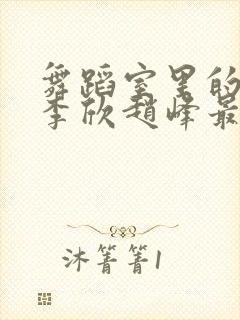 舞蹈室里的
李欣赵峰最
沐箐箐1